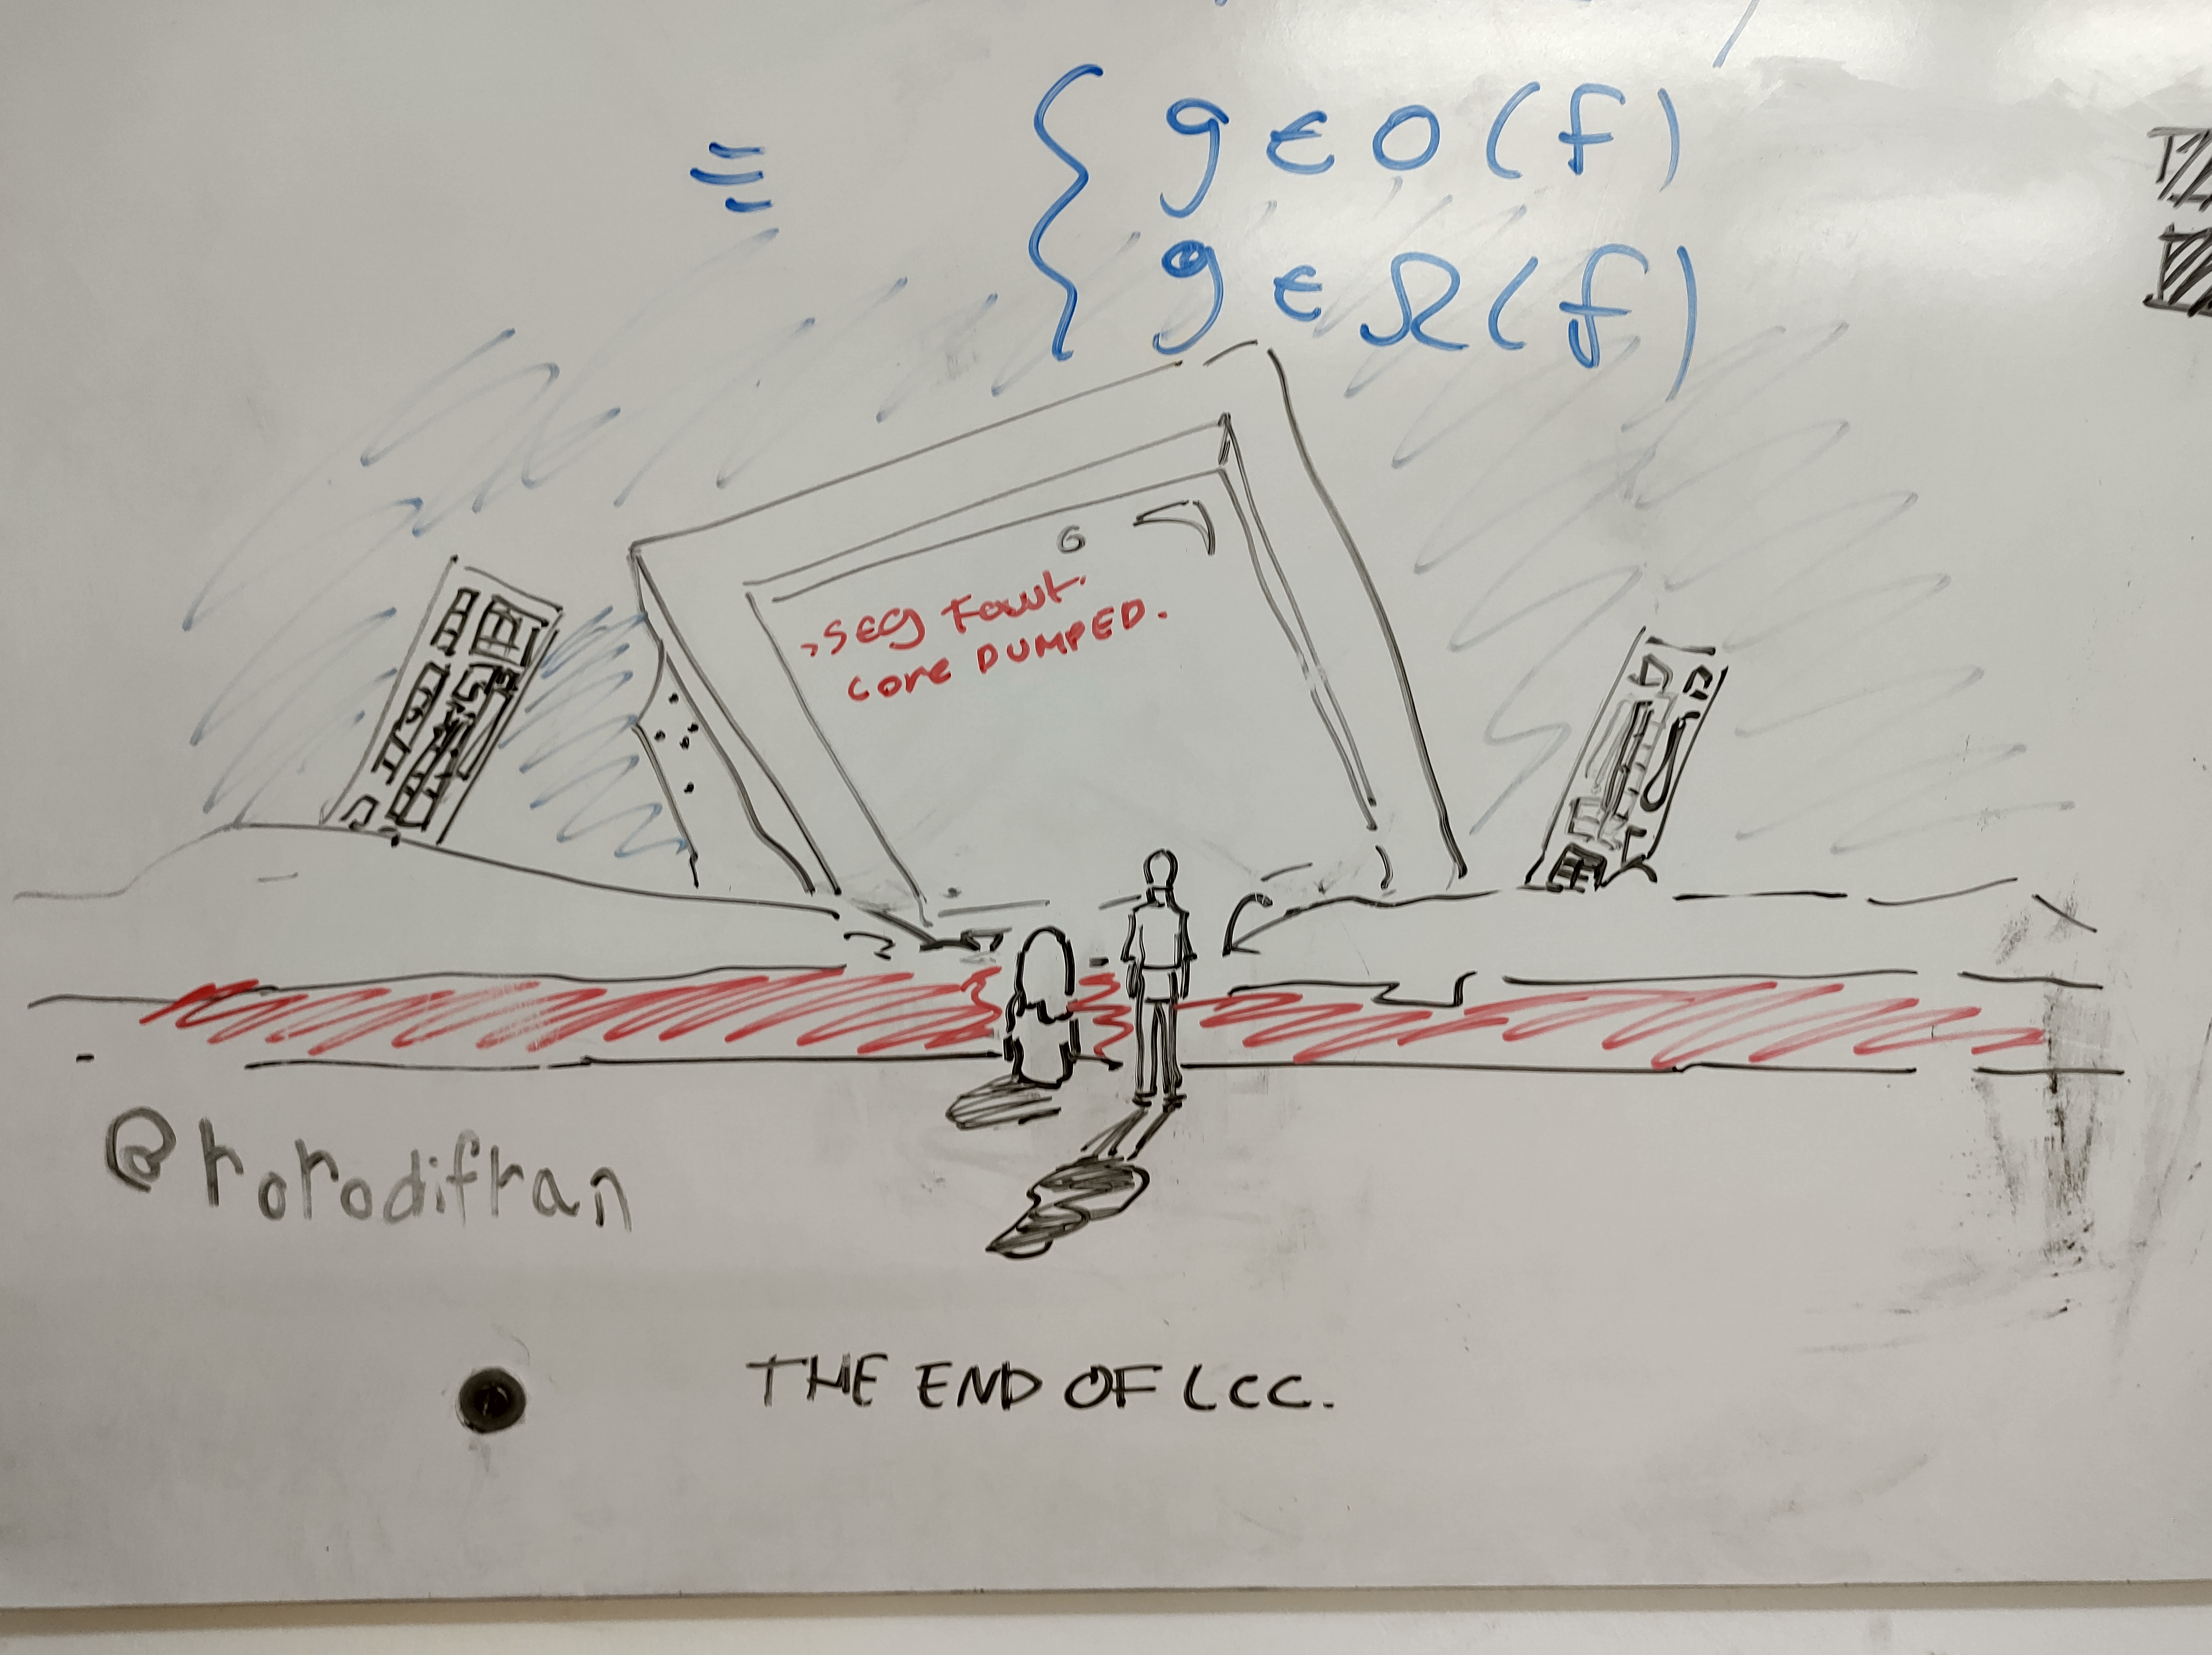 ≡ { g ∈ O(f)
g ∈ Ω(f)
>SEG Fault.
core DUMPED.
@rorodifran
THE END OF LCC.